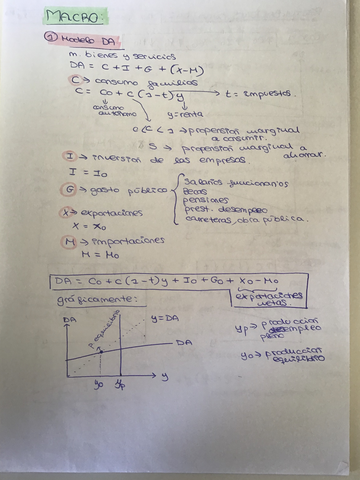 MACRO:
① Modelo DA
m. bienes y servicios
DA = C + I + G + (X-M)
C → consumo familias
C = Co + c (1-t) y → t = impuestos.
consumo autónomo
y=renta
0<c<1 → propensión marginal a consumir.
S → propensión marginal a ahorrar.
I → inversión de las empresas.
I = Io
G → gasto público
salarios funcionarios
becas
pensiones
prest. desempleo
carreteras, obra pública.
X → exportaciones
X = Xo
M → importaciones
M = Mo
DA = Co + c(1-t)y + Io + Go + Xo - Mo
exportaciones netas
gráficamente:
DA
p. equilibrio
y=DA
DA
yo
yp
y
yp → producción pleno empleo
yo → producción equilibrio